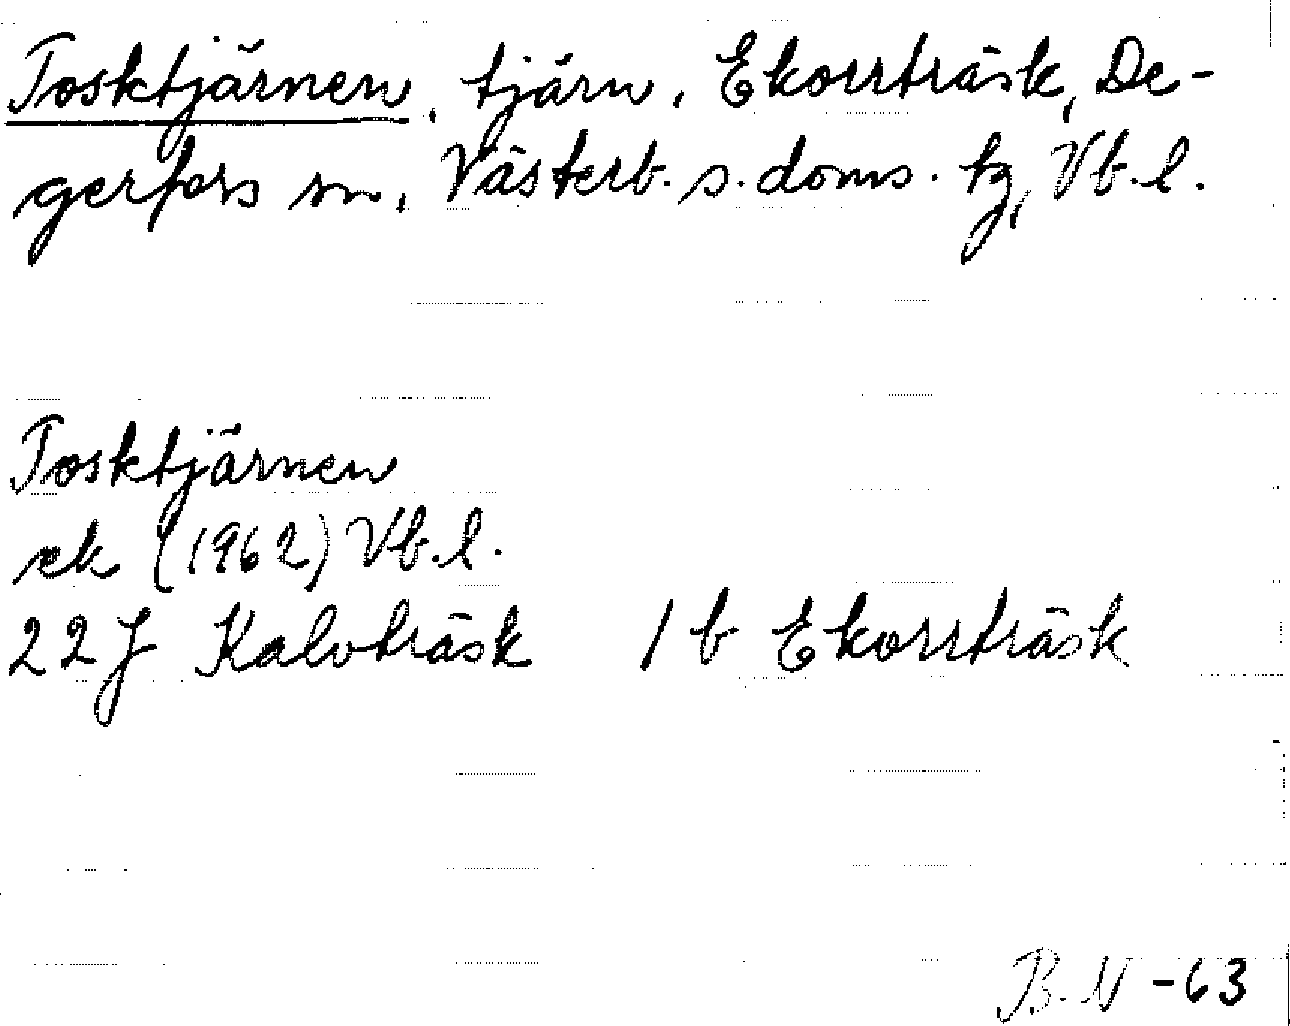 Tosktjärnen, tjärn, Ekorrträsk, De-
gerfors sn, Västerb. s. doms. tg, Vb. l.
Tosktjärnen
ek (1962) Vb. l.
22J Kalvträsk 1 b Ekorrträsk
B.N -63